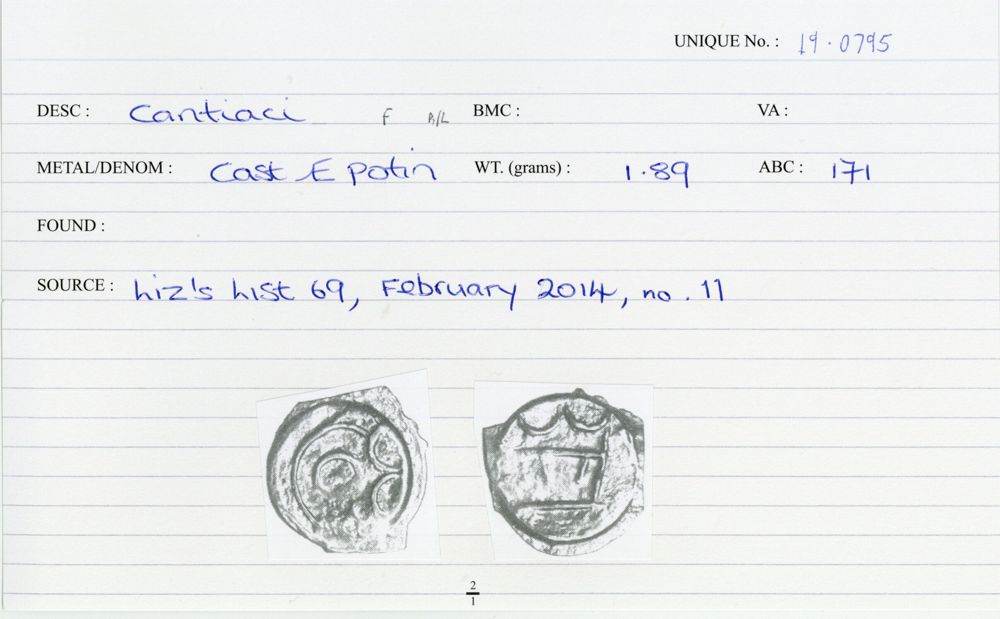 UNIQUE No. : 19.0795
DESC : Cantiaci F R/L BMC : VA :
METAL/DENOM : Cast Æ potin WT. (grams) : 1.89 ABC : 171
FOUND :
SOURCE : Liz's list 69, February 2014, no. 11
2
1